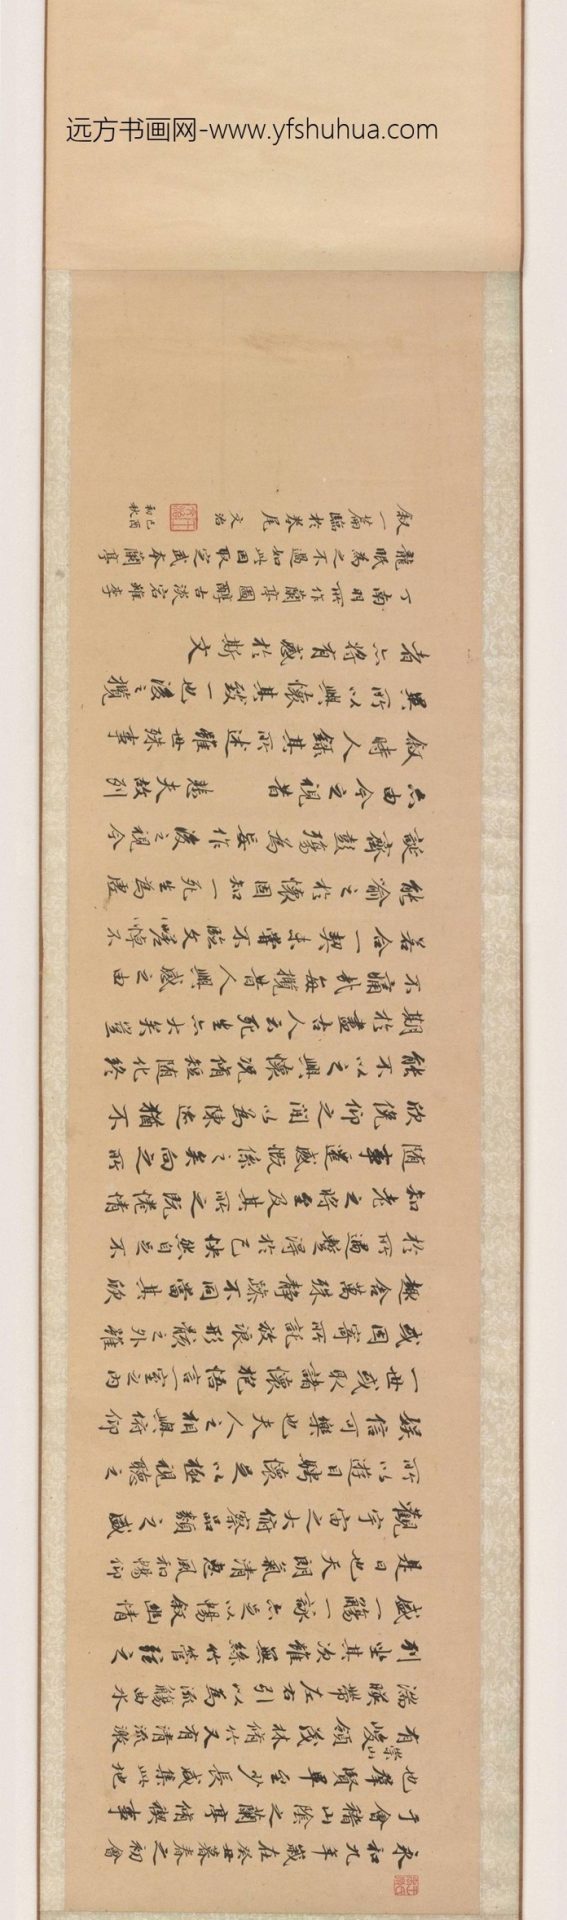 远方书画网-www.yfshuhua.com
永和九年歲在癸丑暮春之初會
于會稽山陰之蘭亭脩禊事
也羣賢畢至少長咸集此地
有崇山峻領茂林脩竹又有清流激
湍暎帶左右引以為流觴曲水
列坐其次雖無絲竹管弦之
盛一觴一詠亦足以暢敘幽情
是日也天朗氣清惠風和暢仰
觀宇宙之大俯察品類之盛
所以遊目騁懷足以極視聽之
娛信可樂也夫人之相與俯仰
一世或取諸懷抱悟言一室之內
或因寄所託放浪形骸之外雖
趣舍萬殊靜躁不同當其欣
於所遇暫得於己快然自足不
知老之將至及其所之既惓情
隨事遷感慨係之矣向之所
欣俛仰之間以為陳迹猶不
能不以之興懷況脩短隨化終
期於盡古人云死生亦大矣豈
不痛哉每攬昔人興感之由
若合一契未嘗不臨文嗟悼不
能喻之於懷固知一死生為虛
誕齊彭殤為妄作後之視今
亦由今之視昔 悲夫故列
敘時人錄其所述雖世殊事
異所以興懷其致一也後之攬
者亦將有感於斯文
丁南羽所作蘭亭圖醇古淡宕雖李
龍眠為之不過如此因取定武本蘭亭
敘一篇臨於卷尾 文治
己酉
初秋